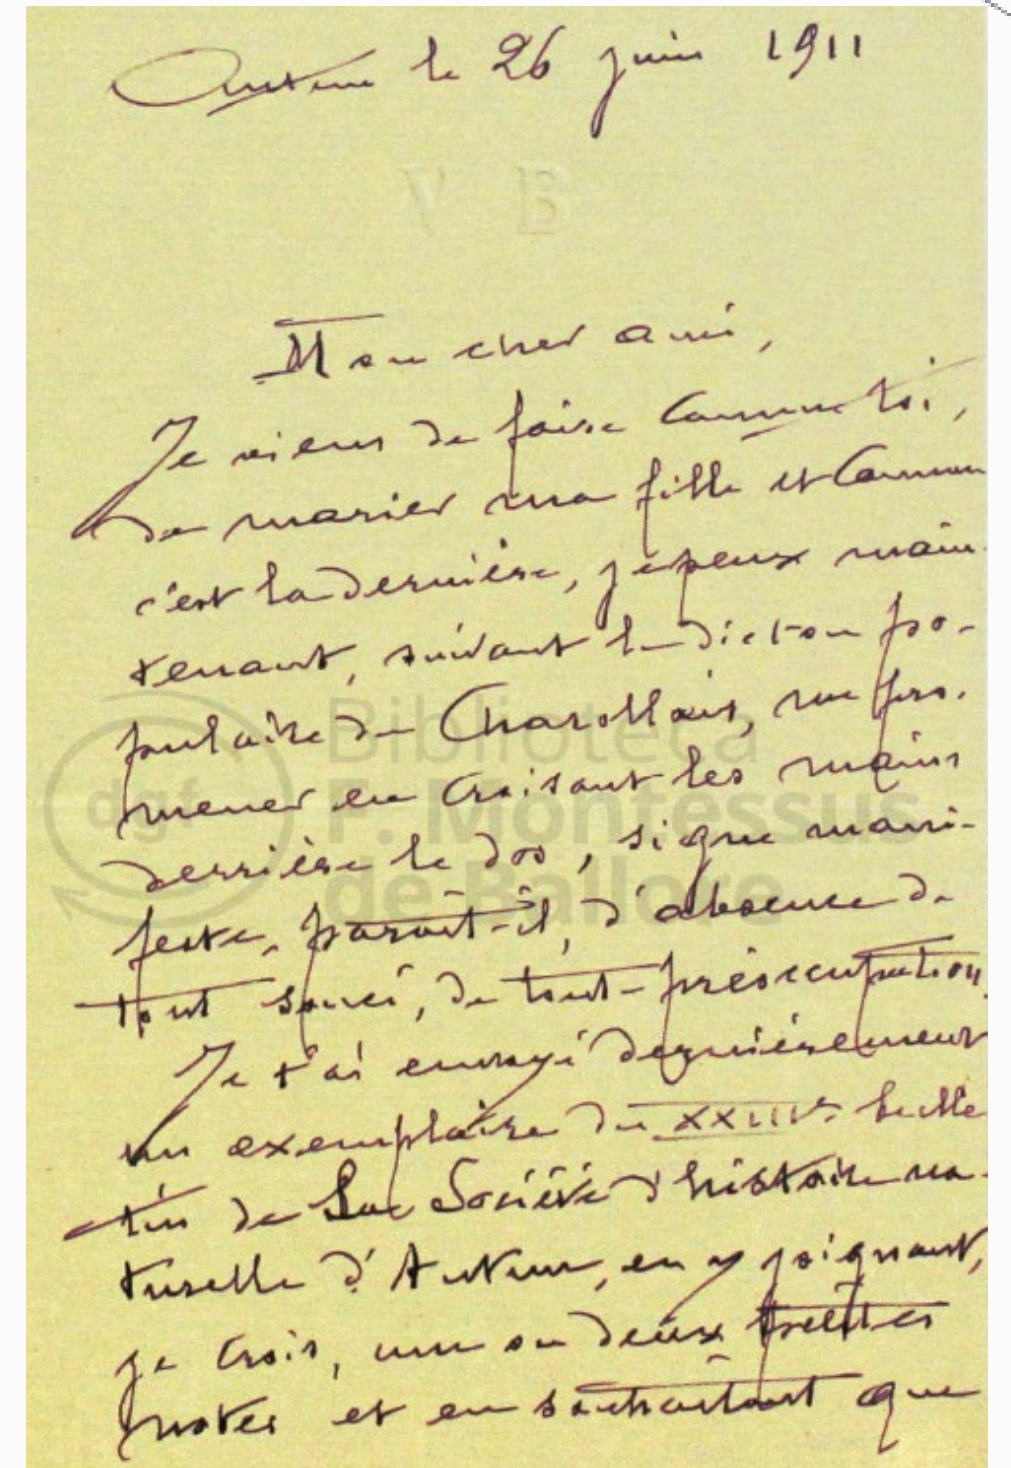 Autun le 26 juin 1911
V B
Mon cher ami,
Je viens de faire comme toi,
de marier ma fille et comme
c'est la dernière, je peux main-
tenant, suivant le dicton po-
pulaire du Charollais, me pro-
mener en croisant les mains
derrière le dos, signe mani-
feste, paraît-il, d'absence de
tout souci, de toute préoccupation.
Je t'ai envoyé dernièrement
un exemplaire du XXIIIe bulle
tin de la Société d'histoire na-
turelle d'Autun, en y joignant,
je crois, une ou deux petites
notes et en souhaitant que
dgf
Biblioteca
F. Montessus
de Ballore